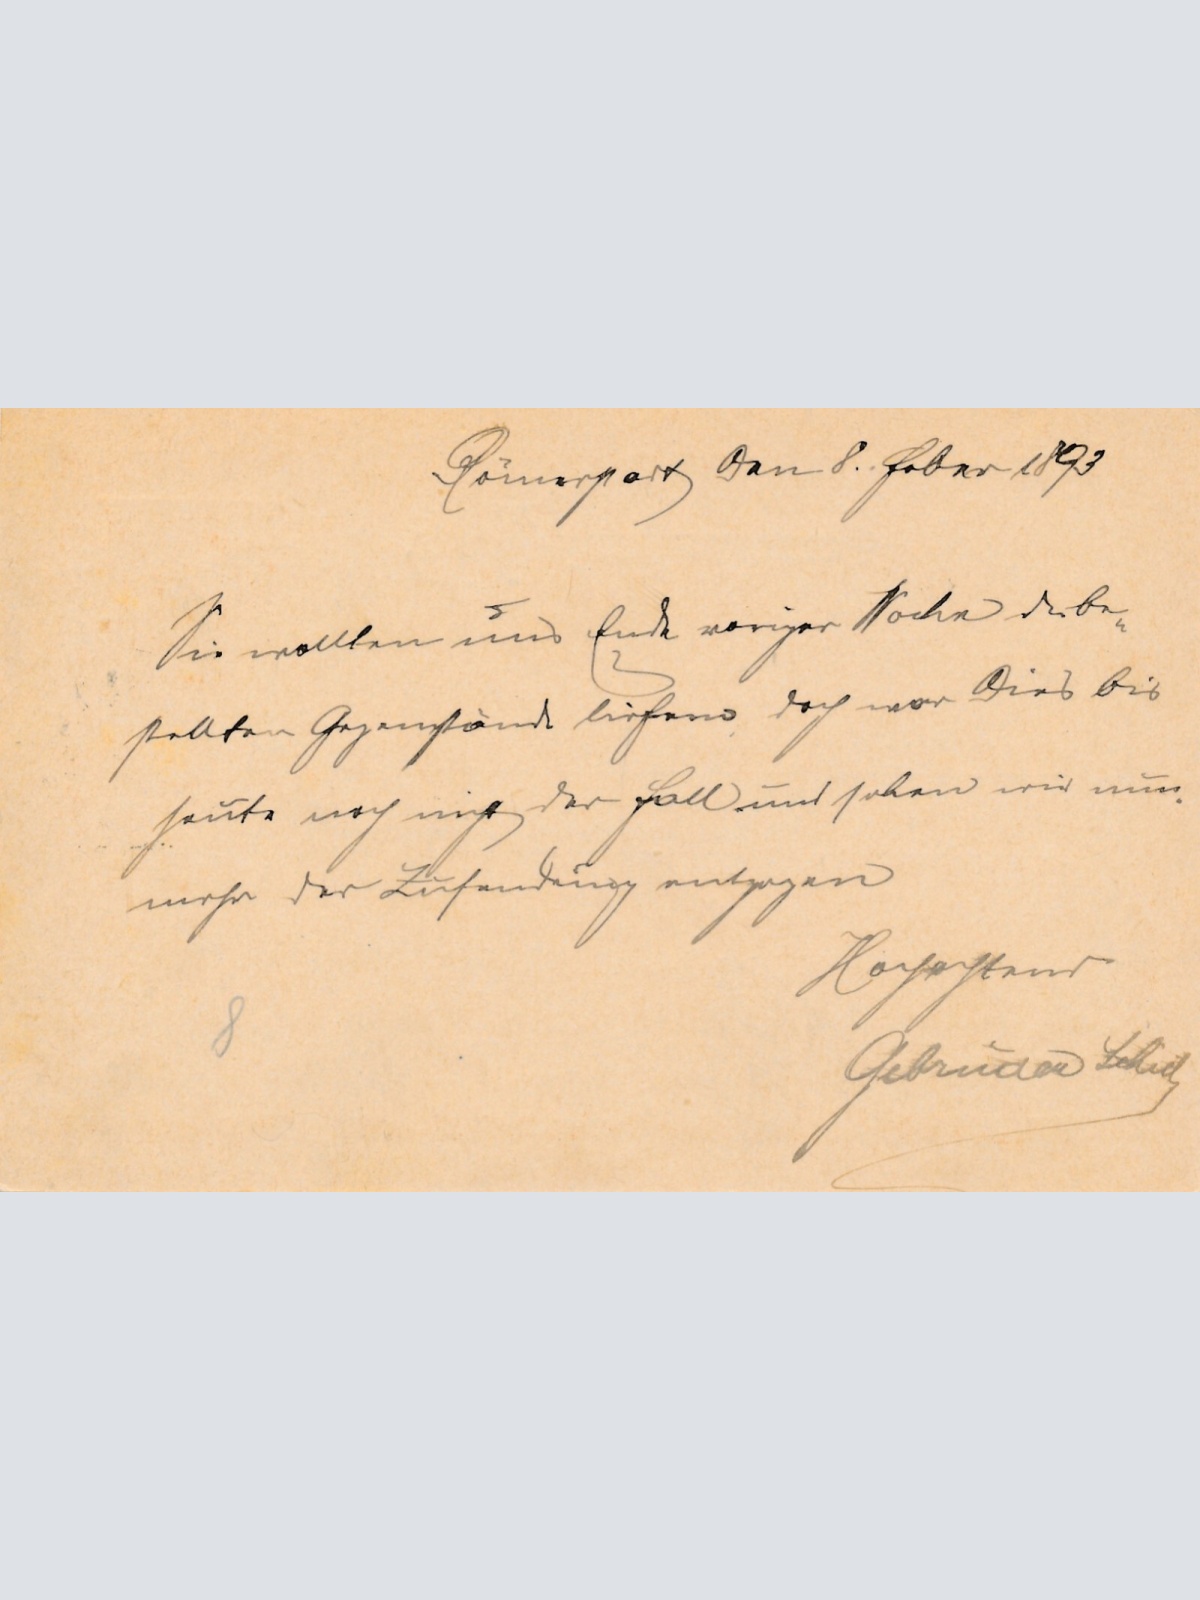 Quint den 8. Feber 1893
Sie wollten uns Ende voriger Woche die be„
stellten Gegenstände liefern, doch war Dies bis
heute noch nicht der Fall und sehen wir nun„
mehr der Zusendung entgegen
Hochachtend
Gebrüder
8